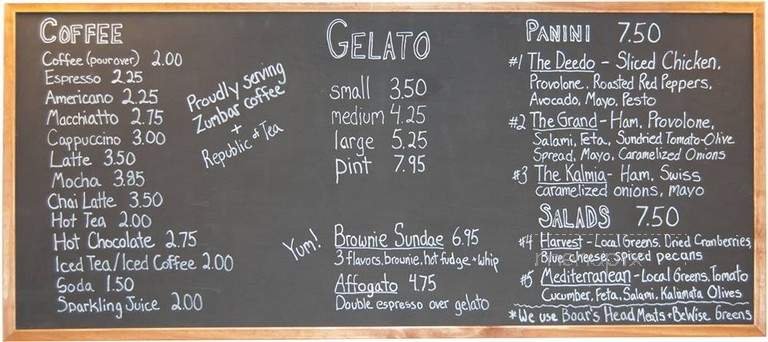 COFFEE
Coffee (pour over) 2.00
Espresso 2.25
Americano 2.25
Macchiatto 2.75
Cappuccino 3.00
Latte 3.50
Mocha 3.85
Chai Latte 3.50
Hot Tea 2.00
Hot Chocolate 2.75
Iced Tea/Iced Coffee 2.00
Soda 1.50
Sparkling Juice 2.00
Proudly serving
Zumbar coffee
+
Republic of Tea
GELATO
small 3.50
medium 4.25
large 5.25
pint 7.95
Yum! Brownie Sundae 6.95
3 flavors, brownie, hot fudge + whip
Affogato 4.75
Double espresso over gelato
PANINI 7.50
#1 The Deedo - Sliced Chicken,
Provolone, Roasted Red Peppers,
Avocado, Mayo, Pesto
#2 The Grand - Ham, Provolone,
Salami, Feta, Sundried Tomato-Olive
Spread, Mayo, Caramelized Onions
#3 The Kalmia - Ham, Swiss
caramelized onions, mayo
SALADS 7.50
#4 Harvest - Local Greens, Dried Cranberries,
Blue cheese, spiced pecans
#5 Mediterranean - Local Greens, Tomato
Cucumber, Feta, Salami, Kalamata Olives
*We use Boar's Head Meats + BeWise Greens